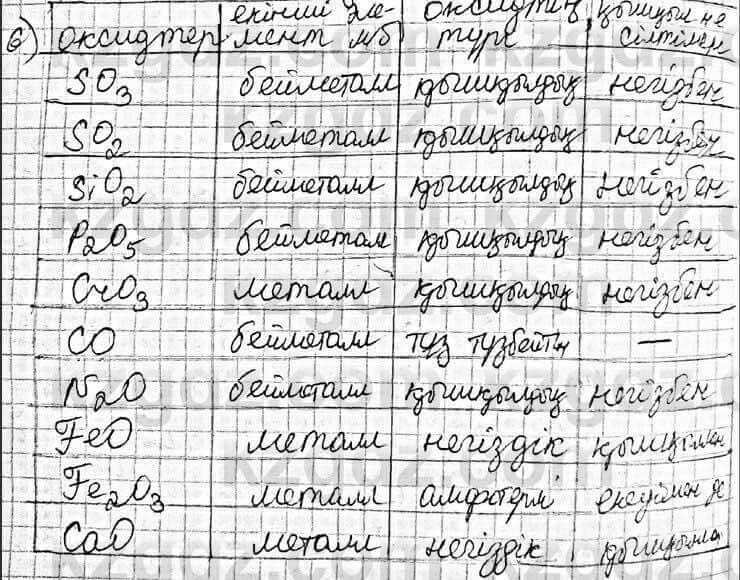 6) оксидтер екінші эле- оксидтің қышқыл не
мент м/б түрі сілтімен
SO3 бейметалл қышқылдық негізбен
SO2 бейметалл қышқылдық негізбен
SiO2 бейметалл қышқылдық негізбен
P2O5 бейметалл қышқылдық негізбен
CrO3 металл қышқылдық негізбен
CO бейметалл тұз түзбейтін —
N2O бейметалл қышқылдық негізбен
FeO металл негіздік қышқылмен
Fe2O3 металл амфотерлі екеуімен де
CaO металл негіздік